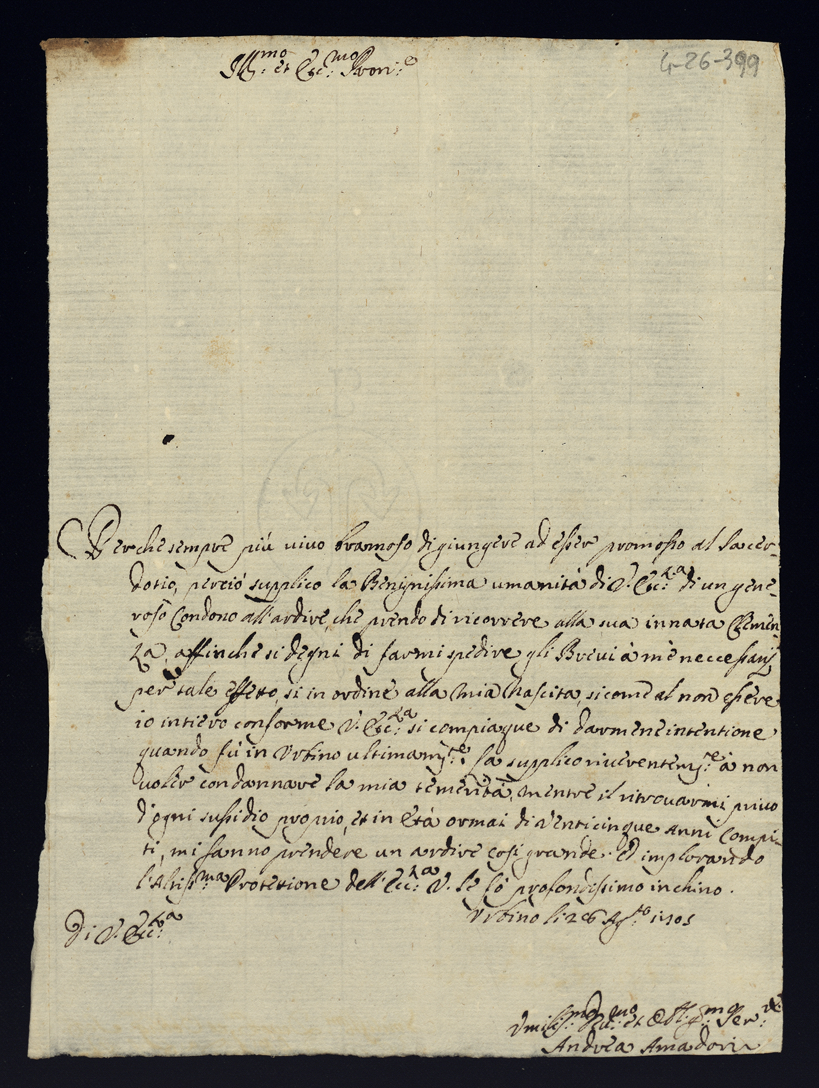 Ill:mo et Ecc:mo Pron:e
4-26-399
Perche sempre più vivo bramoso di giungere ad esser promosso al Sacer-
dotio, perciò supplico la Benignissima umanità di V. Ecc:za di un gene-
roso Condono all'ardire, che prendo di ricorrere alla sua innata Clemen-
za, affinche si degni di farmi spedire gli Brevi à mè neccessarij
per tale effetto, si in ordine alla mia Nascita, si come al non essere
io intiero conforme V. Ecc:za si compiaque di darmene intentione
quando fù in Urbino ultimam:te. La supplico riverentem:te à non
voler condannare la mia temerità, mentre il ritrovarmi privo
d'ogni susidio proprio, et in Età ormai di Venticinque Anni Compi-
ti, mi fanno prendere un ardire così grande. Ed implorando
l'Altiss:ma Protettione dell'Ecc:za V. le fò profondissimo inchino.
Urbino li 26 Ag:to 1705
Di V. Ecc:za
Umiliss:mo Dev:mo et Obl:mo Ser:re
Andrea Amadori